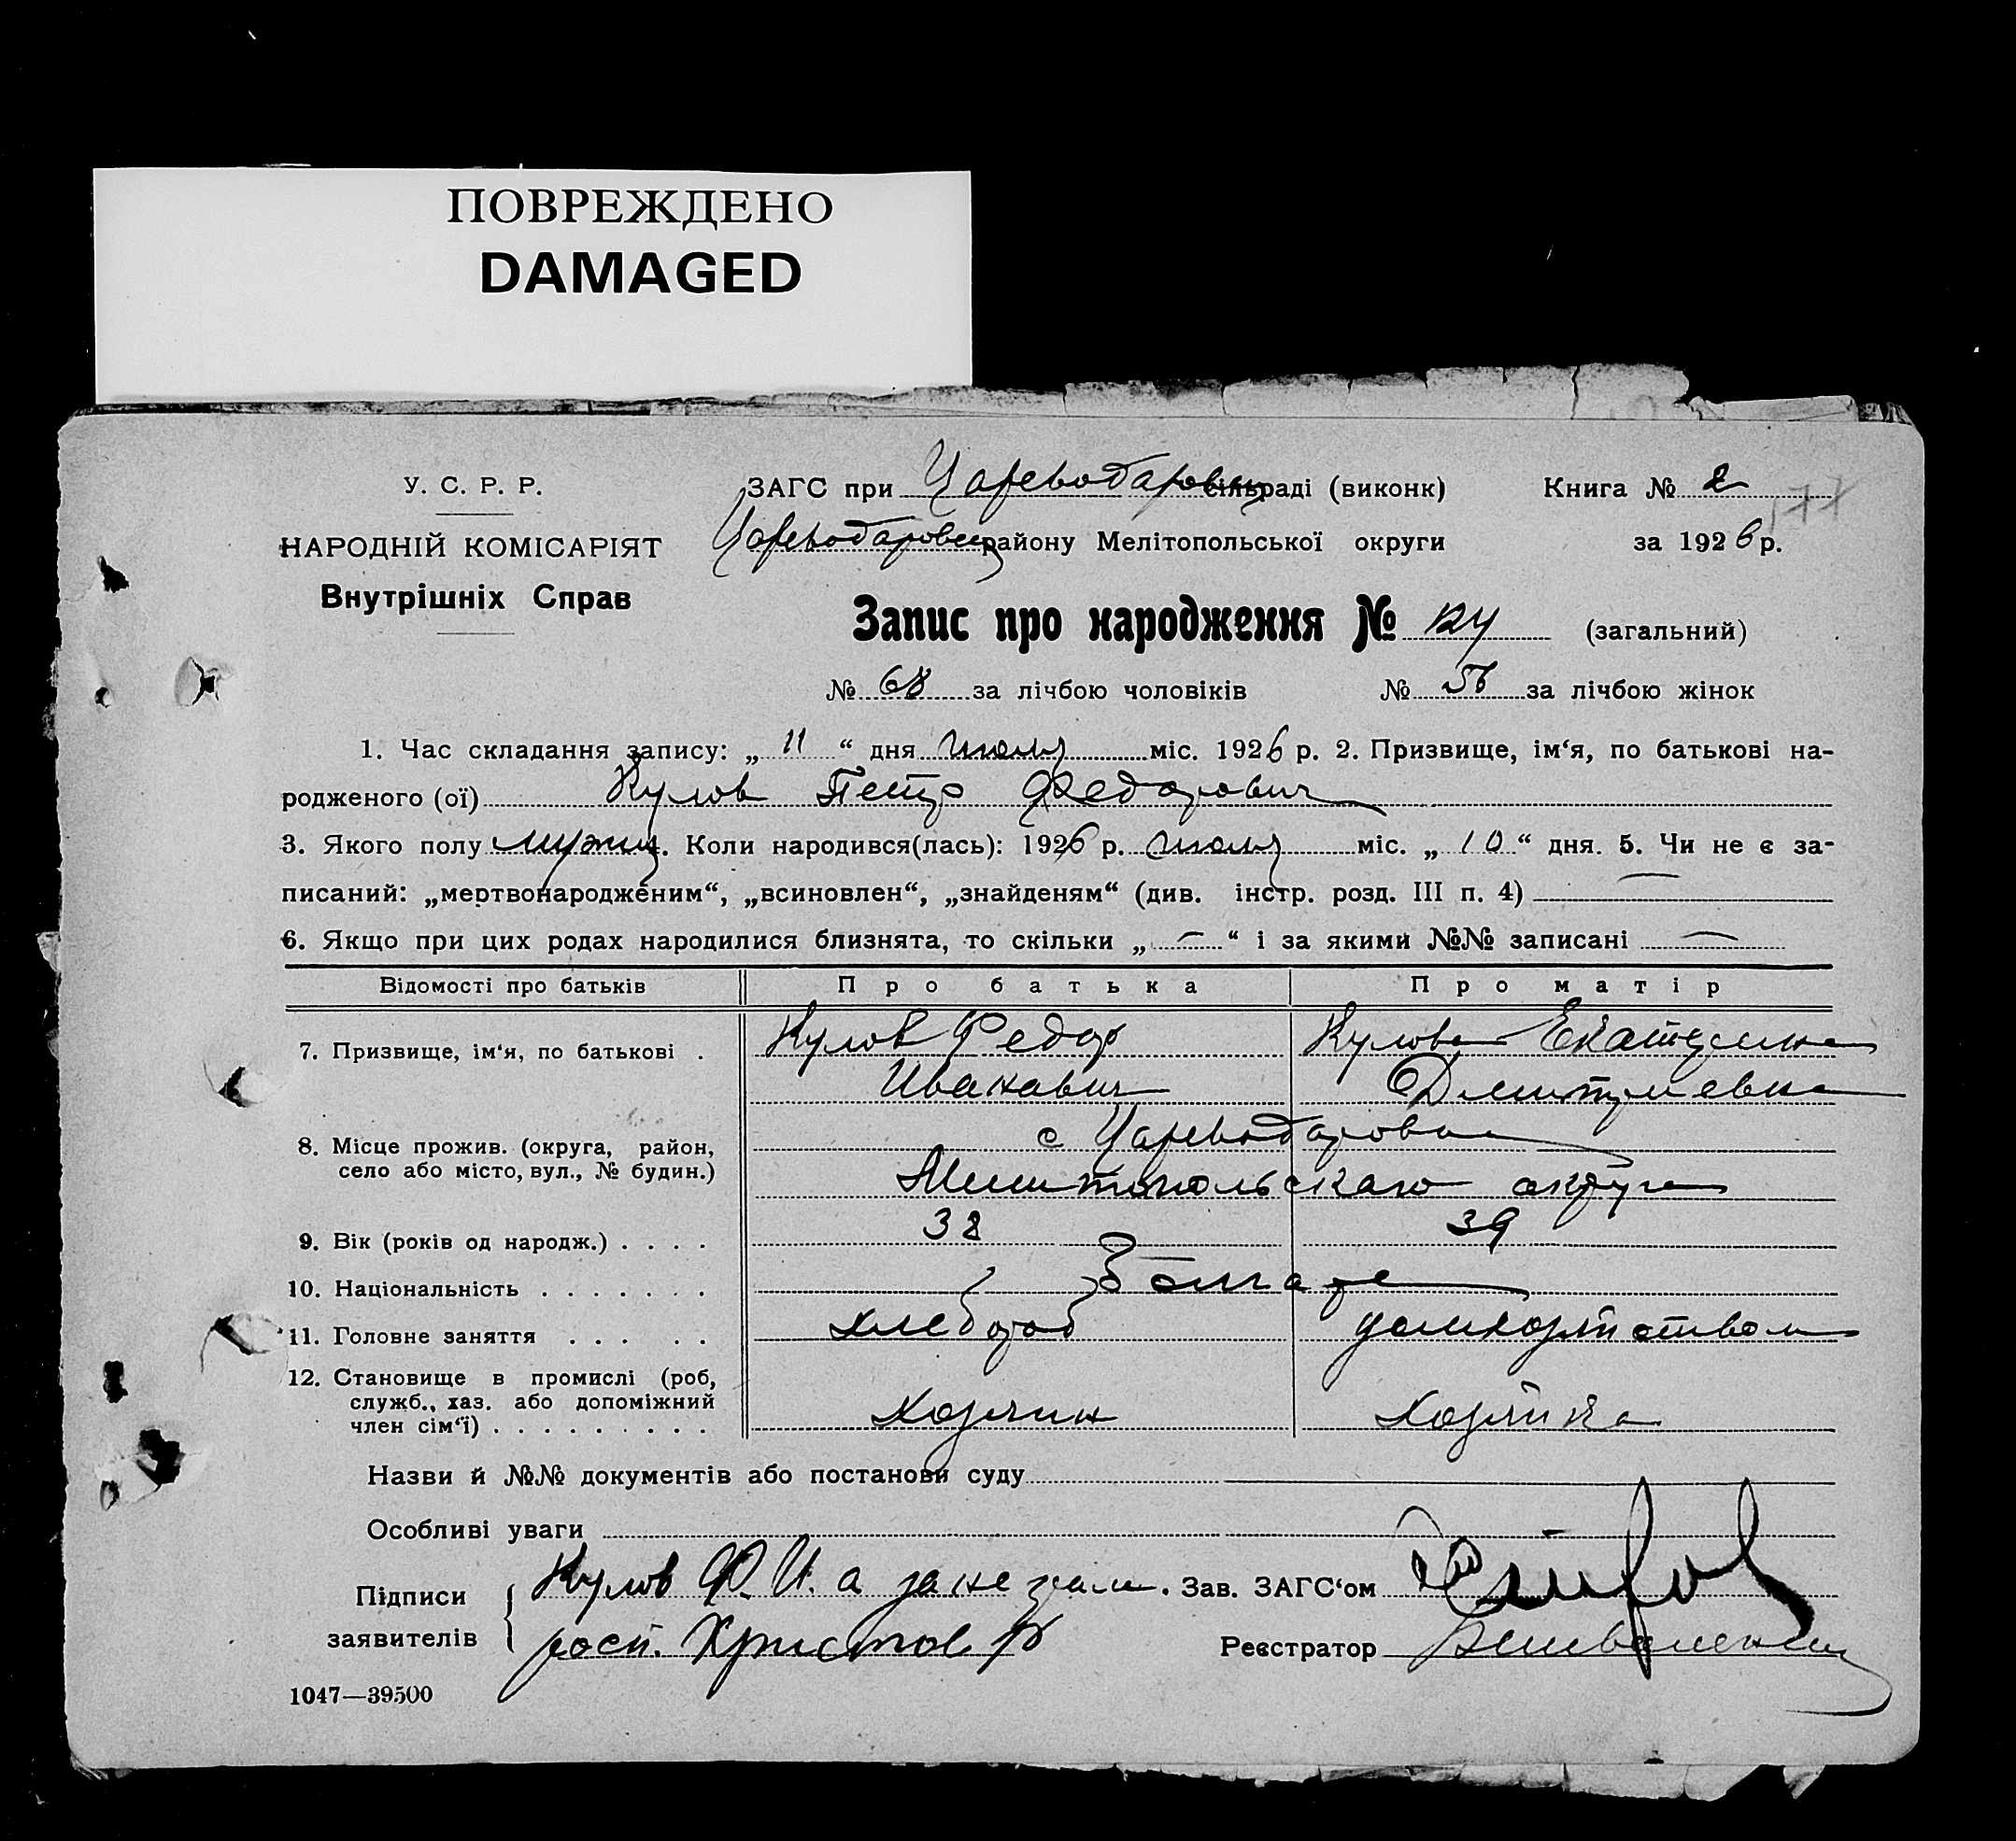 ПОВРЕЖДЕНО
DAMAGED
У. С. Р. Р.
НАРОДНІЙ КОМІСАРІЯТ
Внутрішніх Справ
ЗАГС при Цареводаровск сільраді (виконк) Книга № 2
177
Цареводаровск району Мелітопольської округи за 1926 р.
Запис про народження № 124 (загальний)
№ 68 за лічбою чоловіків № 56 за лічбою жінок
1. Час складання запису: „ 11 “ дня июля міс. 1926 р. 2. Призвище, ім‘я, по батькові на-
родженого (ої) Кулов Петр Федорович
3. Якого полу мужск 4. Коли народився(лась): 1926 р. июля міс. „ 10 “ дня. 5. Чи не є за-
писаний: „мертвонародженим“, „всиновлен“, „знайденям“ (див. інстр. розд. III п. 4) —
6. Якщо при цих родах народилися близнята, то скільки „ — “ і за якими №№ записані —
Відомості про батьків Про батька Про матір
7. Призвище, ім‘я, по батькові . Кулов Федор Кулова Екатерина
Иванович Дмитриевна
8. Місце прожив. (округа, район, село або місто, вул., № будин.) с Цареводаровка
Мелитопольскаго округа
9. Вік (років од народж.) . . . . 38 39
10. Національність . . . . . . . Болгаре
11. Головне заняття . . . . . хлебороб домохозяйством
12. Становище в промислі (роб,
служб., хаз. або допоміжний
член сім‘ї) . . . . . . . . . хозяин хозяйка
Назви й №№ документів або постанови суду
Особливі уваги
Підписи заявителів Кулов Ф. И. а за не грам. Зав. ЗАГС‘ом
росп. Христов Реєстратор
1047—39500